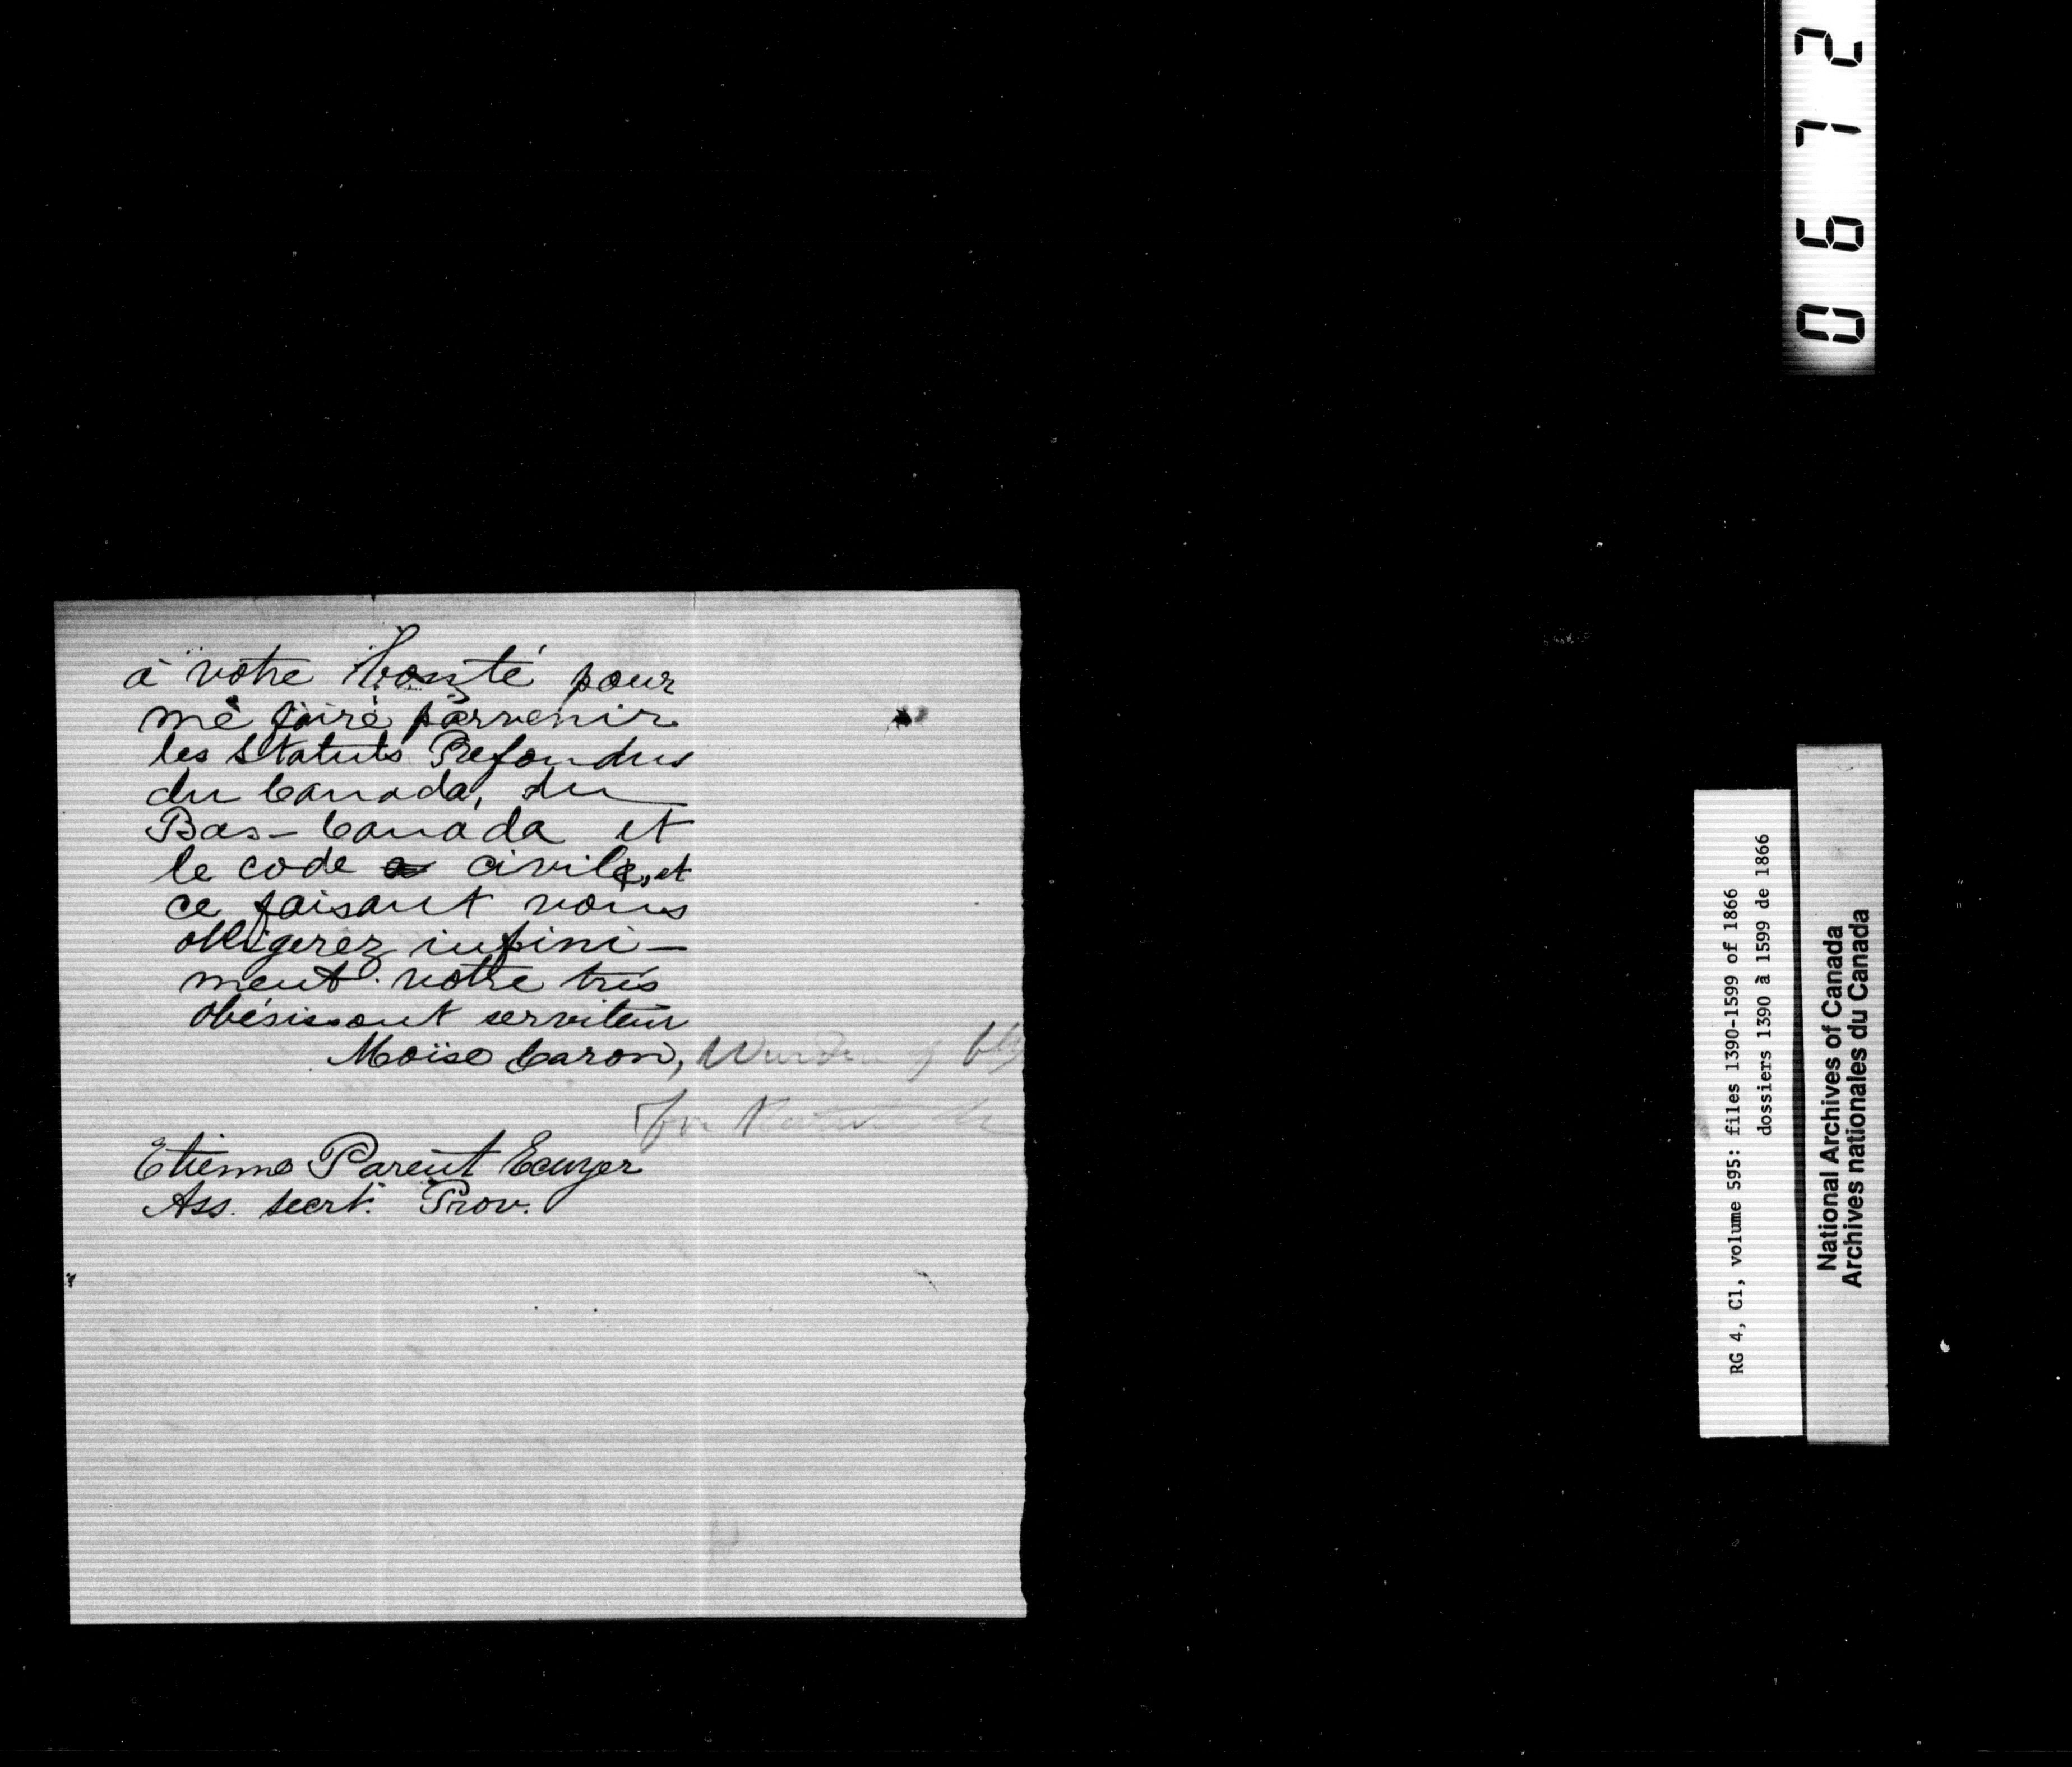 à votre bonté pour
me faire parvenir
les Statuts Refondus
du Canada, du
Bas-Canada et
le code civile, et
ce faisant vous
obligerez infini-
ment votre très
obésissant serviteur
Moïse Caron, Warden of
for
Etienne Parent Ecuyer
Ass. secrt. Prov.
0672
RG 4, C1, volume 595: files 1390-1599 of 1866
dossiers 1390 à 1599 de 1866
National Archives of Canada
Archives nationales du Canada